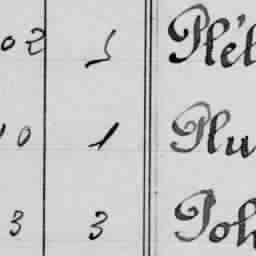 02 5 Plél
10 1 Plu
3 3 Poh